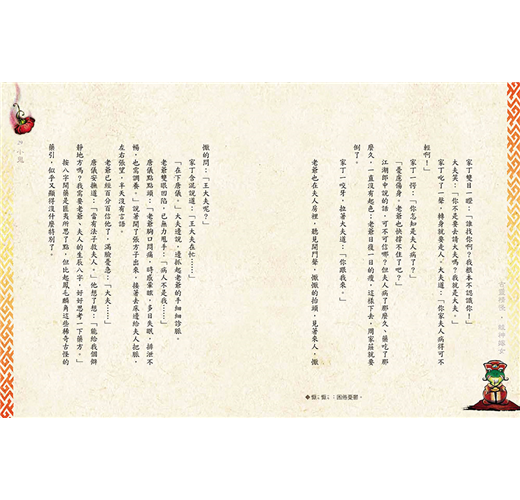 家丁雙目一瞪:「誰找你啊?我根本不認識你!」
大夫笑:「你不是要去請大夫嗎?我就是大夫。」
家丁吃了一驚,轉身就要走人。大夫道:「你家夫人病得可不
輕啊!」
家丁一愣:「你怎知是夫人病了?」
「憂慮傷身,老爺也快撐不住了吧?」
江湖郎中說的話,可不假?夫人病了那麼久、藥吃了那
麼久,一直沒有起色;老爺日復一日的瘦,這樣下去,周家莊就要
倒了。
家丁一咬牙,拉著大夫道:「你跟我來。」
老爺也在夫人房裡,聽見開門聲,
的抬頭,見著來人,
的問:「王大夫呢?」
家丁含混說道:「王大夫在忙……」
「在下唐儀。」大夫邊說,邊抓起老爺的手細細診脈。
老爺雙眼凹陷,已無力甩手:「病人不是我……」
唐儀點點頭:「老爺胸口悶痛,時感暈眩,多日失眠,排泄不
暢,也需調養。」說著開了張方子出來,接著去床邊給夫人把脈,
左右張望,半天沒有言語。
老爺已經百分百信他了,滿臉憂急:「大夫……」
唐儀安撫道:「當有法子救夫人。」他想了想:「能給我個僻
靜地方嗎?我需要老爺、夫人的生辰八字,好好思考一下藥方。」
按八字開藥是匪夷所思了點,但比起鳳毛麟角這些稀奇古怪的
藥引,似乎又顯得沒什麼特別了。
:困倦憂鬱。